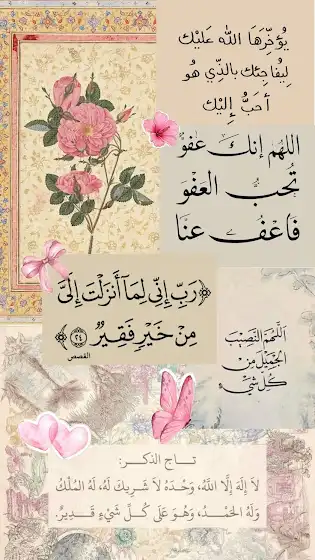 يُؤخّرَهَا اللّٰه عَليْك
لِيُفاجِئك بالذِّي هُو
أحَبُّ إِليْك
اللهُم إنكَ عَفوٌ
تُحبُّ العَفْوَ
فَاعْفُ عَنّا
﴿رَبِّ إِنِّي لِمَآ أَنزَلْتَ إِلَىَّ
مِنْ خَيْرٍ فَقِيرٌ ٢٤﴾
القصص
اَللَّهمَ النَّصِيْبَ
الجَمَيْلَ مِنْ
كُلِ شَيْءٍ
تــاج الذكـر:
لاَ إِلَهَ إِلَّا اللَّهُ، وَحْدَهُ لاَ شَرِيكَ لَهُ، لَهُ المُلْكُ
وَلَهُ الحَمْدُ، وَهُوَ عَلَى كُلِّ شَيْءٍ قَدِيرٌ.